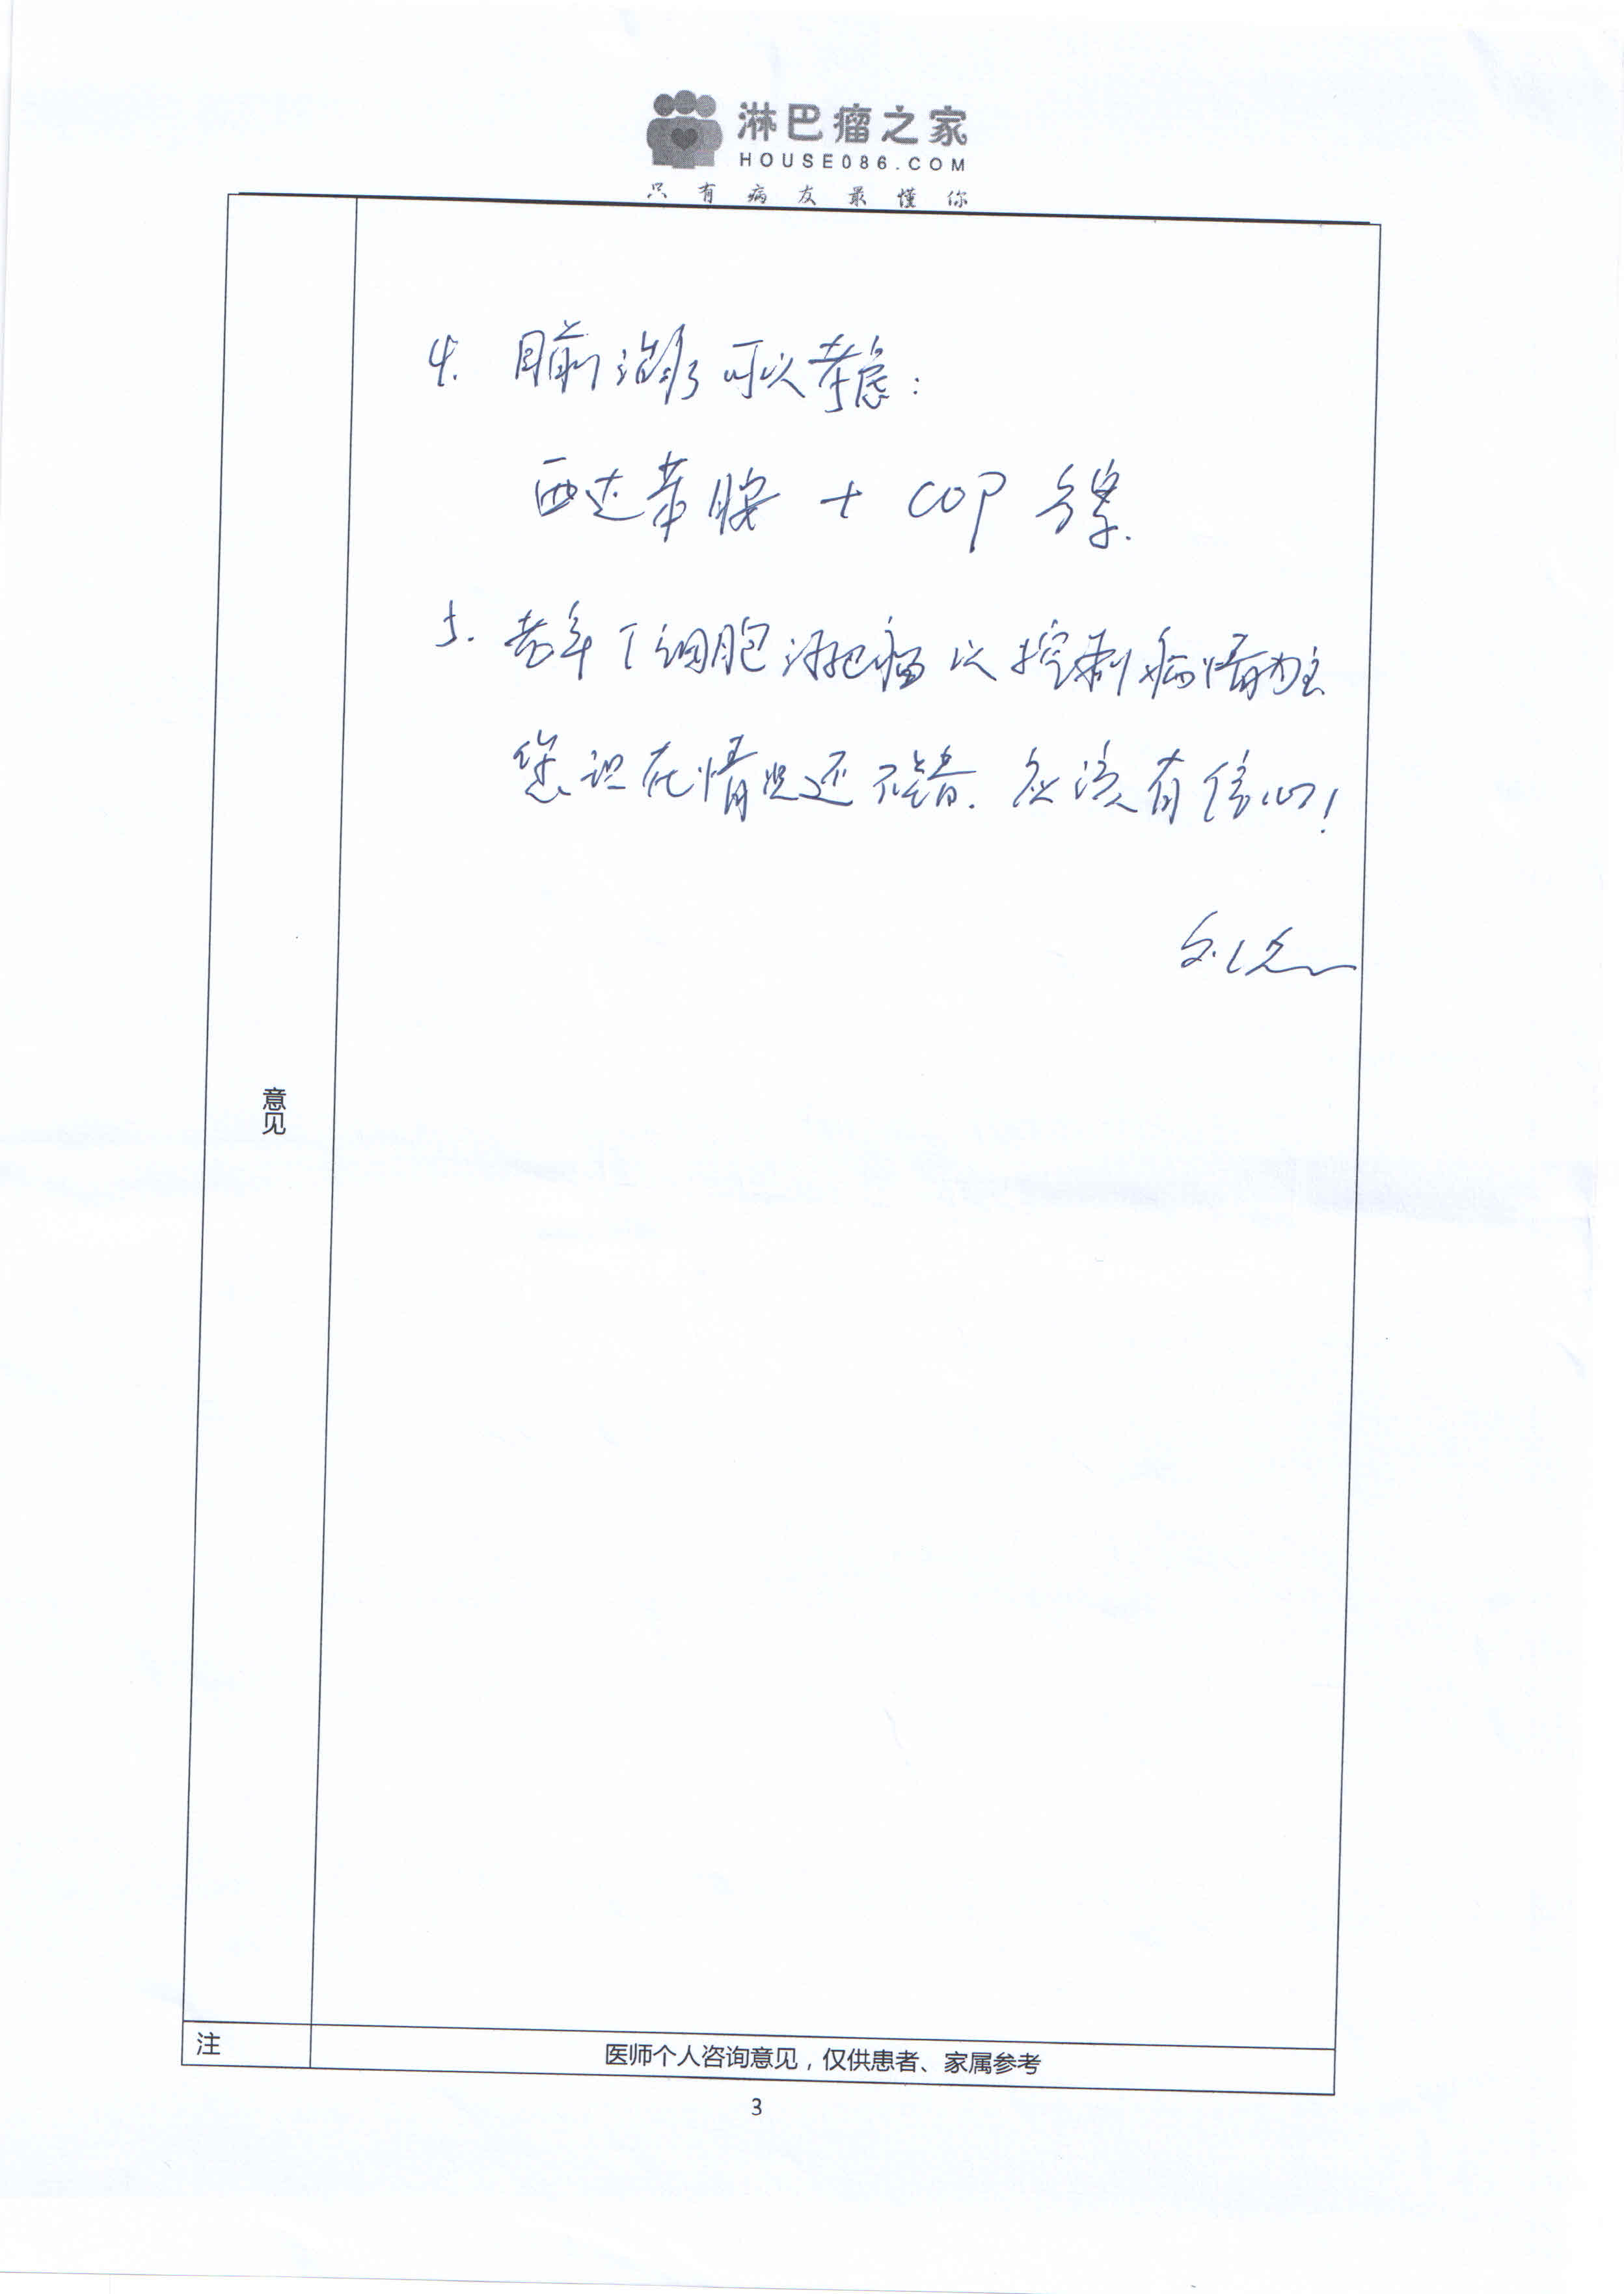 淋巴瘤之家
HOUSE086.COM
只有病友最懂你
4. 目前治疗可以考虑：
西达苯胺 + COP 方案.
5. 老年T细胞淋巴瘤以控制病情为主
您现在情况还不错. 应该有信心!
意见
注
医师个人咨询意见，仅供患者、家属参考
3